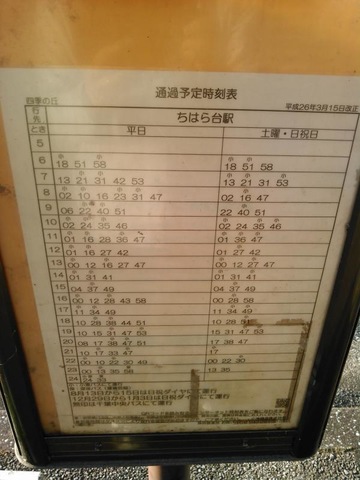 通過予定時刻表
四季の丘
平成26年3月15日改正
行先 ちはら台駅
とき 平日 土曜・日祝日
5
6 18 51 58 18 51 58
7 13 21 31 42 53 13 21 31 53
8 02 10 16 23 31 47 02 16 47
9 06 22 40 51 22 40 51
10 02 24 35 46 02 24 35 46
11 01 16 28 36 47 01 36 47
12 01 16 27 42 01 27 42
13 00 12 16 27 47 00 12 27 47
14 01 31 41 01 31 41
15 04 37 49 04 37 49
16 00 12 28 43 58 00 28 58
17 11 34 49 11 34 49
18 10 28 38 44 51 10 28 51
19 10 15 31 47 53 15 31 47 53
20 08 17 38 47 51 17 38 47
21 10 17 33 47 17
22 00 10 22 30 49 00 22 30
23 00 13 35 58 13 35
24
8月13日から15日は日祝ダイヤにて運行
12月29日から1月3日は日祝ダイヤにて運行
無印は千葉中央バスにて運行